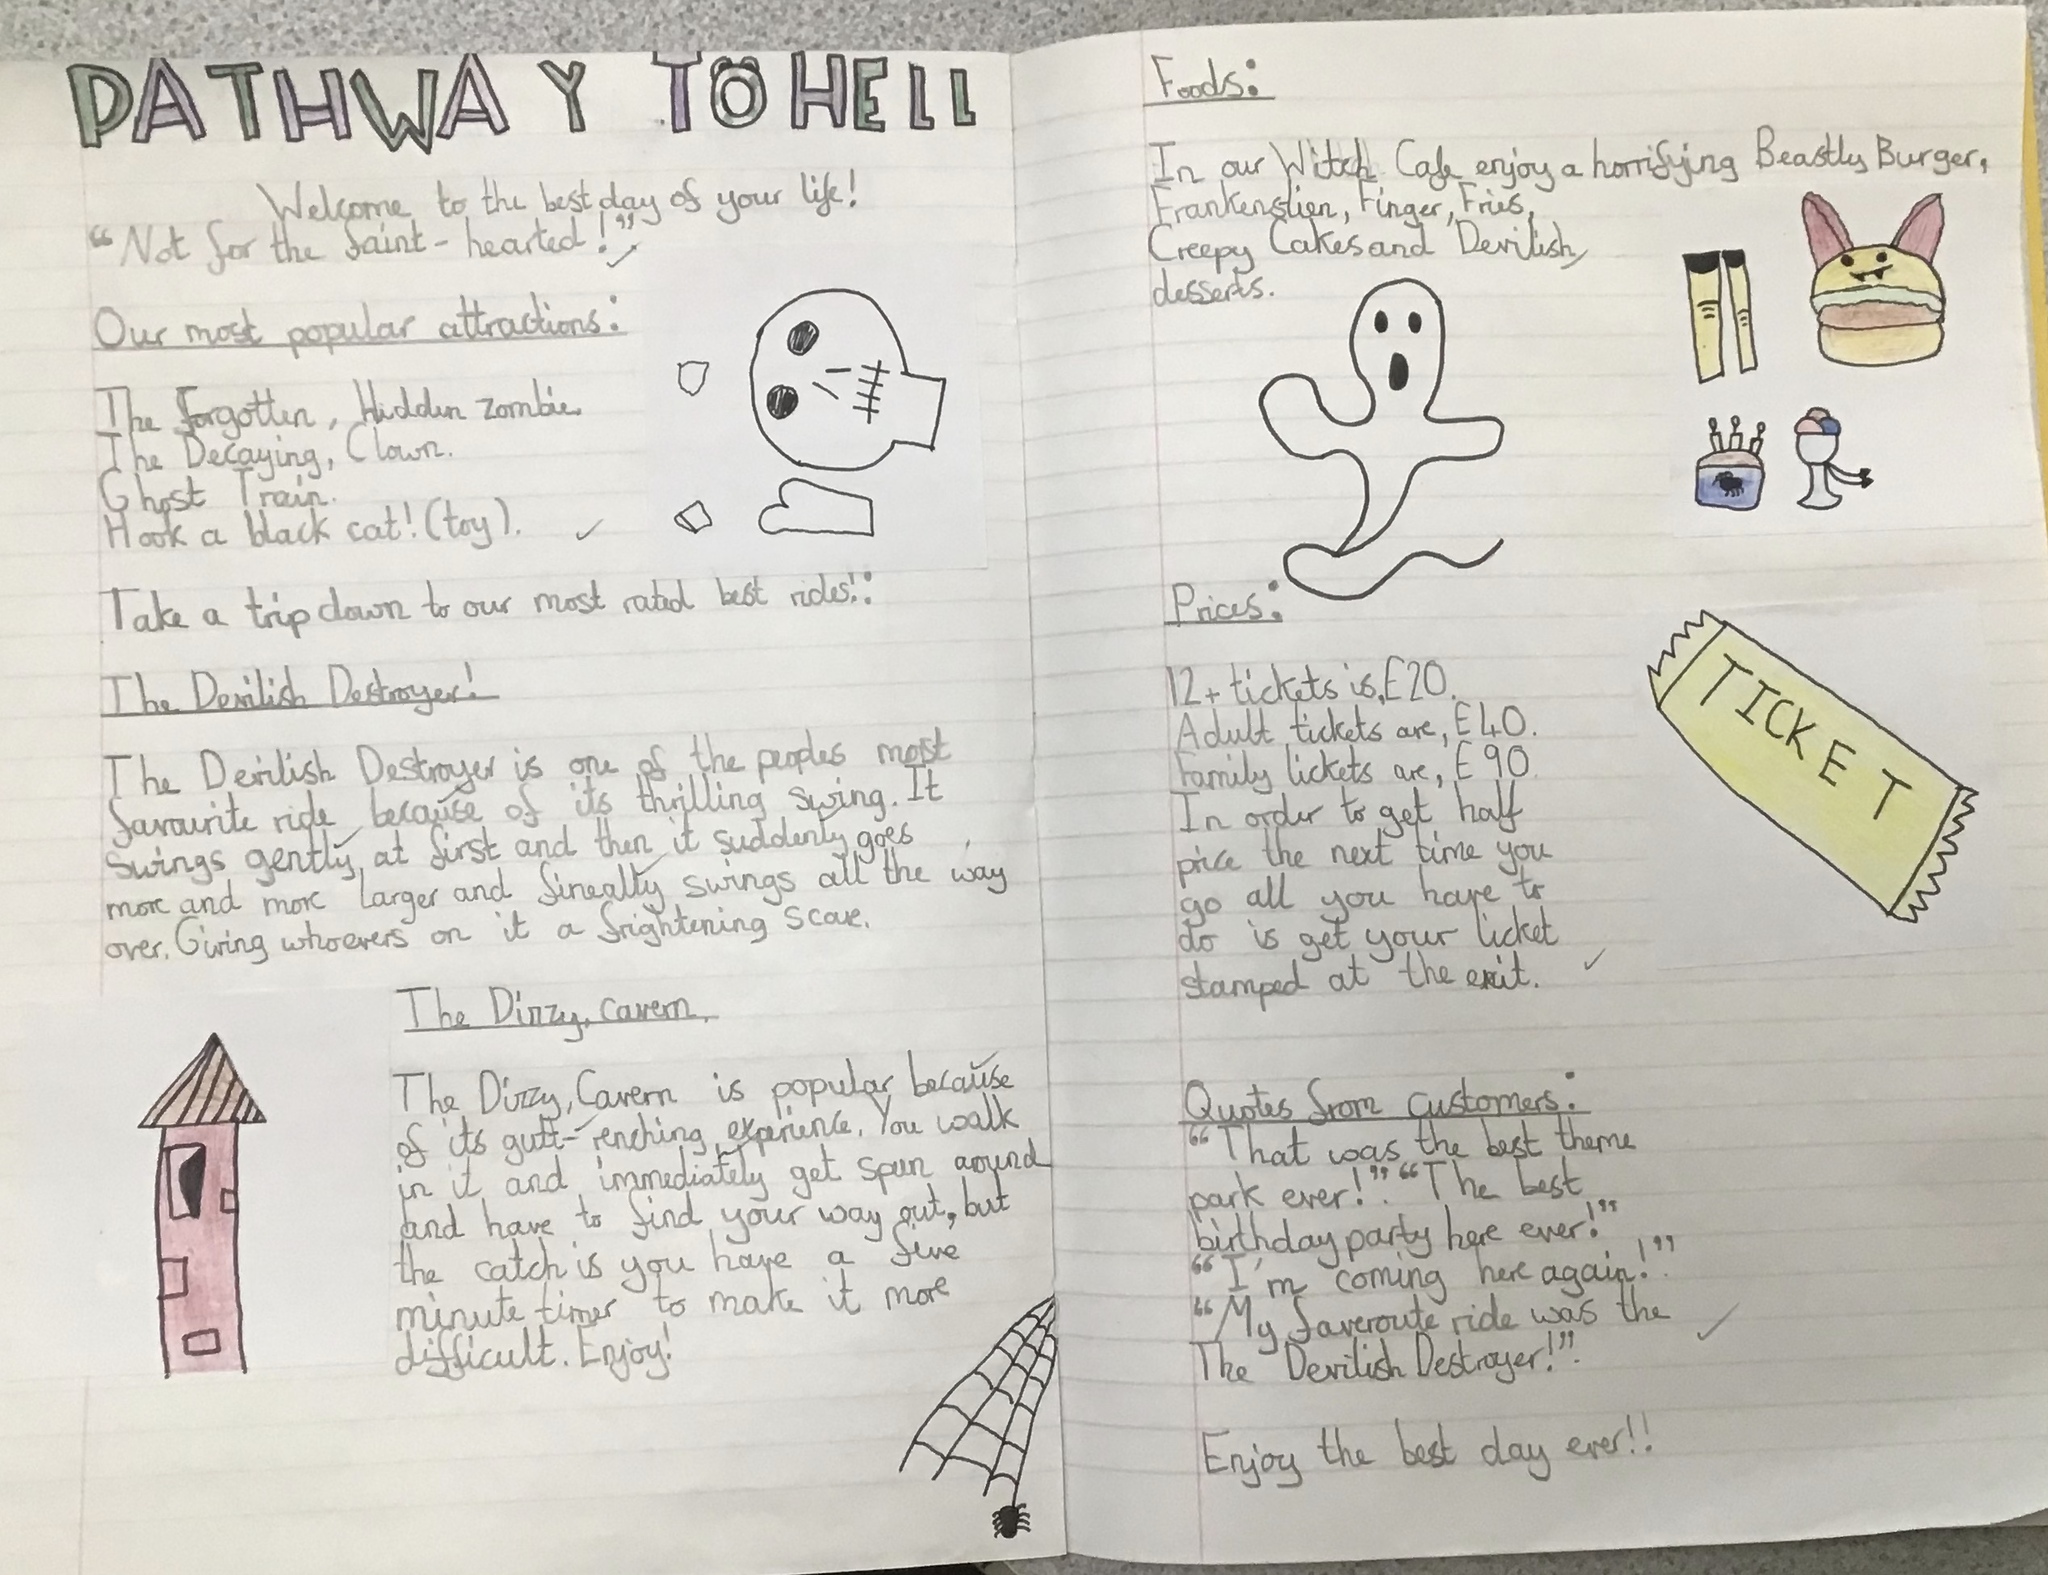 PATHWAY TO HELL
Welcome to the best day of your life!
"Not for the faint-hearted!"
Our most popular attractions:
The Forgotten, Hidden zombie.
The Decaying, Clown.
Ghost Train.
Hook a black cat! (toy).
Take a trip down to our most rated best rides!:
The Devilish Destroyer!
The Devilish Destroyer is one of the peoples most
favourite ride because of its thrilling swing. It
swings gently at first and then it suddenly goes
more and more larger and fineally swings all the way
over. Giving whoevers on it a frightening scare.
The Dizzy, cavern.
The Dizzy, Cavern is popular because
of its gutt-renching experience. You walk
in it and immediately get spun around
and have to find your way out, but
the catch is you have a five
minute timer to make it more
difficult. Enjoy!
Foods:
In our Witch Cafe enjoy a horrifying Beastly Burger,
Frankenstien, Finger, Fries,
Creepy Cakes and Devilish,
desserts.
Prices:
12+ tickets is, £20.
Adult tickets are, £40.
Family tickets are, £90
In order to get half
price the next time you
go all you have to
do is get your ticket
stamped at the exit.
TICKET
Quotes from customers:
"That was the best theme
park ever!". "The best
birthday party here ever!"
"I'm coming here again!".
"My faveroute ride was the
The Devilish Destroyer!".
Enjoy the best day ever!!